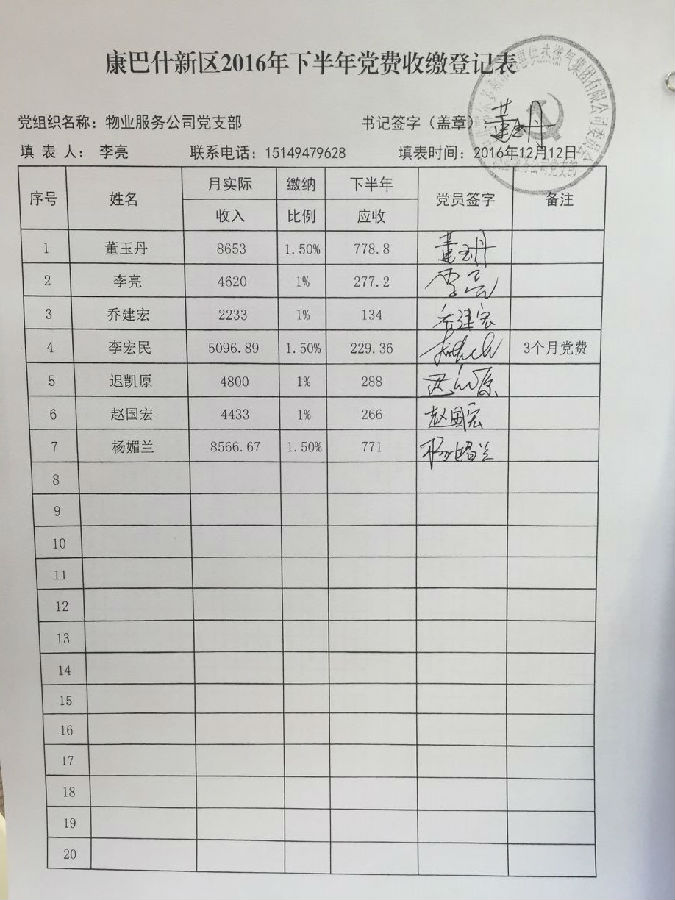 康巴什新区2016年下半年党费收缴登记表
党组织名称：物业服务公司党支部 书记签字（盖章） 董玉丹
填 表 人： 李亮 联系电话：15149479628 填表时间：2016年12月12日
序号 姓名 月实际收入 缴纳比例 下半年应收 党员签字 备注
1 董玉丹 8653 1.50% 778.8 董玉丹
2 李亮 4620 1% 277.2 李亮
3 乔建宏 2233 1% 134 乔建宏
4 李宏民 5096.89 1.50% 229.36 3个月党费
5 迟凯原 4800 1% 288 迟凯原
6 赵国宏 4433 1% 266 赵国宏
7 杨媚兰 8566.67 1.50% 771 杨媚兰
8
9
10
11
12
13
14
15
16
17
18
19
20